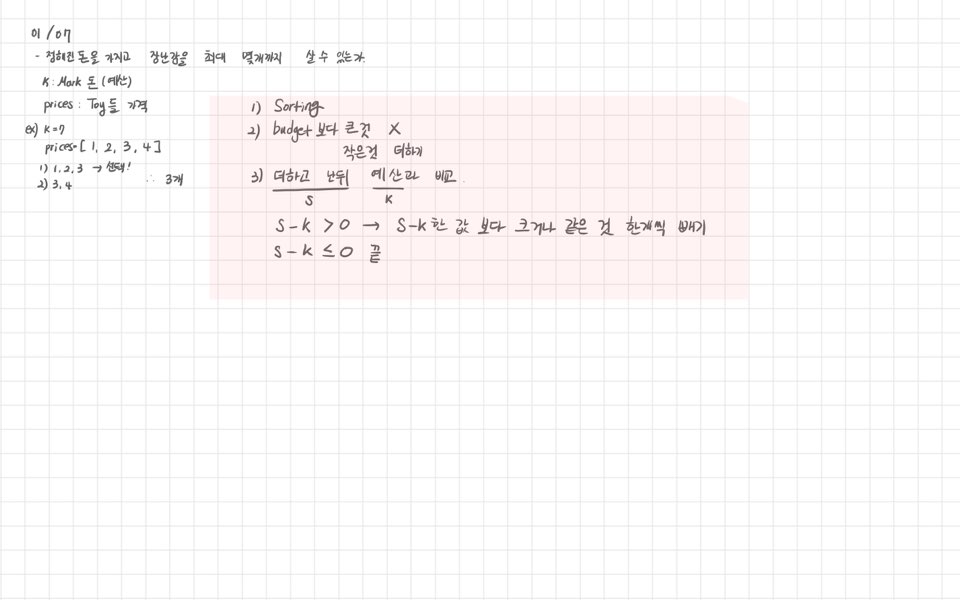 01/07
- 정해진 돈을 가지고 장난감을 최대 몇개까지 살 수 있는가.
K : Mark 돈 (예산)
prices : Toy들 가격
ex) K=7
prices=[1, 2, 3, 4]
1) 1, 2, 3 → 선택!
2) 3, 4 ∴ 3개
1) Sorting
2) budget 보다 큰것 X
작은것 더하기
3) 더하고 난뒤 예산과 비교.
S K
S-K > 0 → S-K한 값 보다 크거나 같은 것 한개씩 빼기
S-K ≤ 0 끝